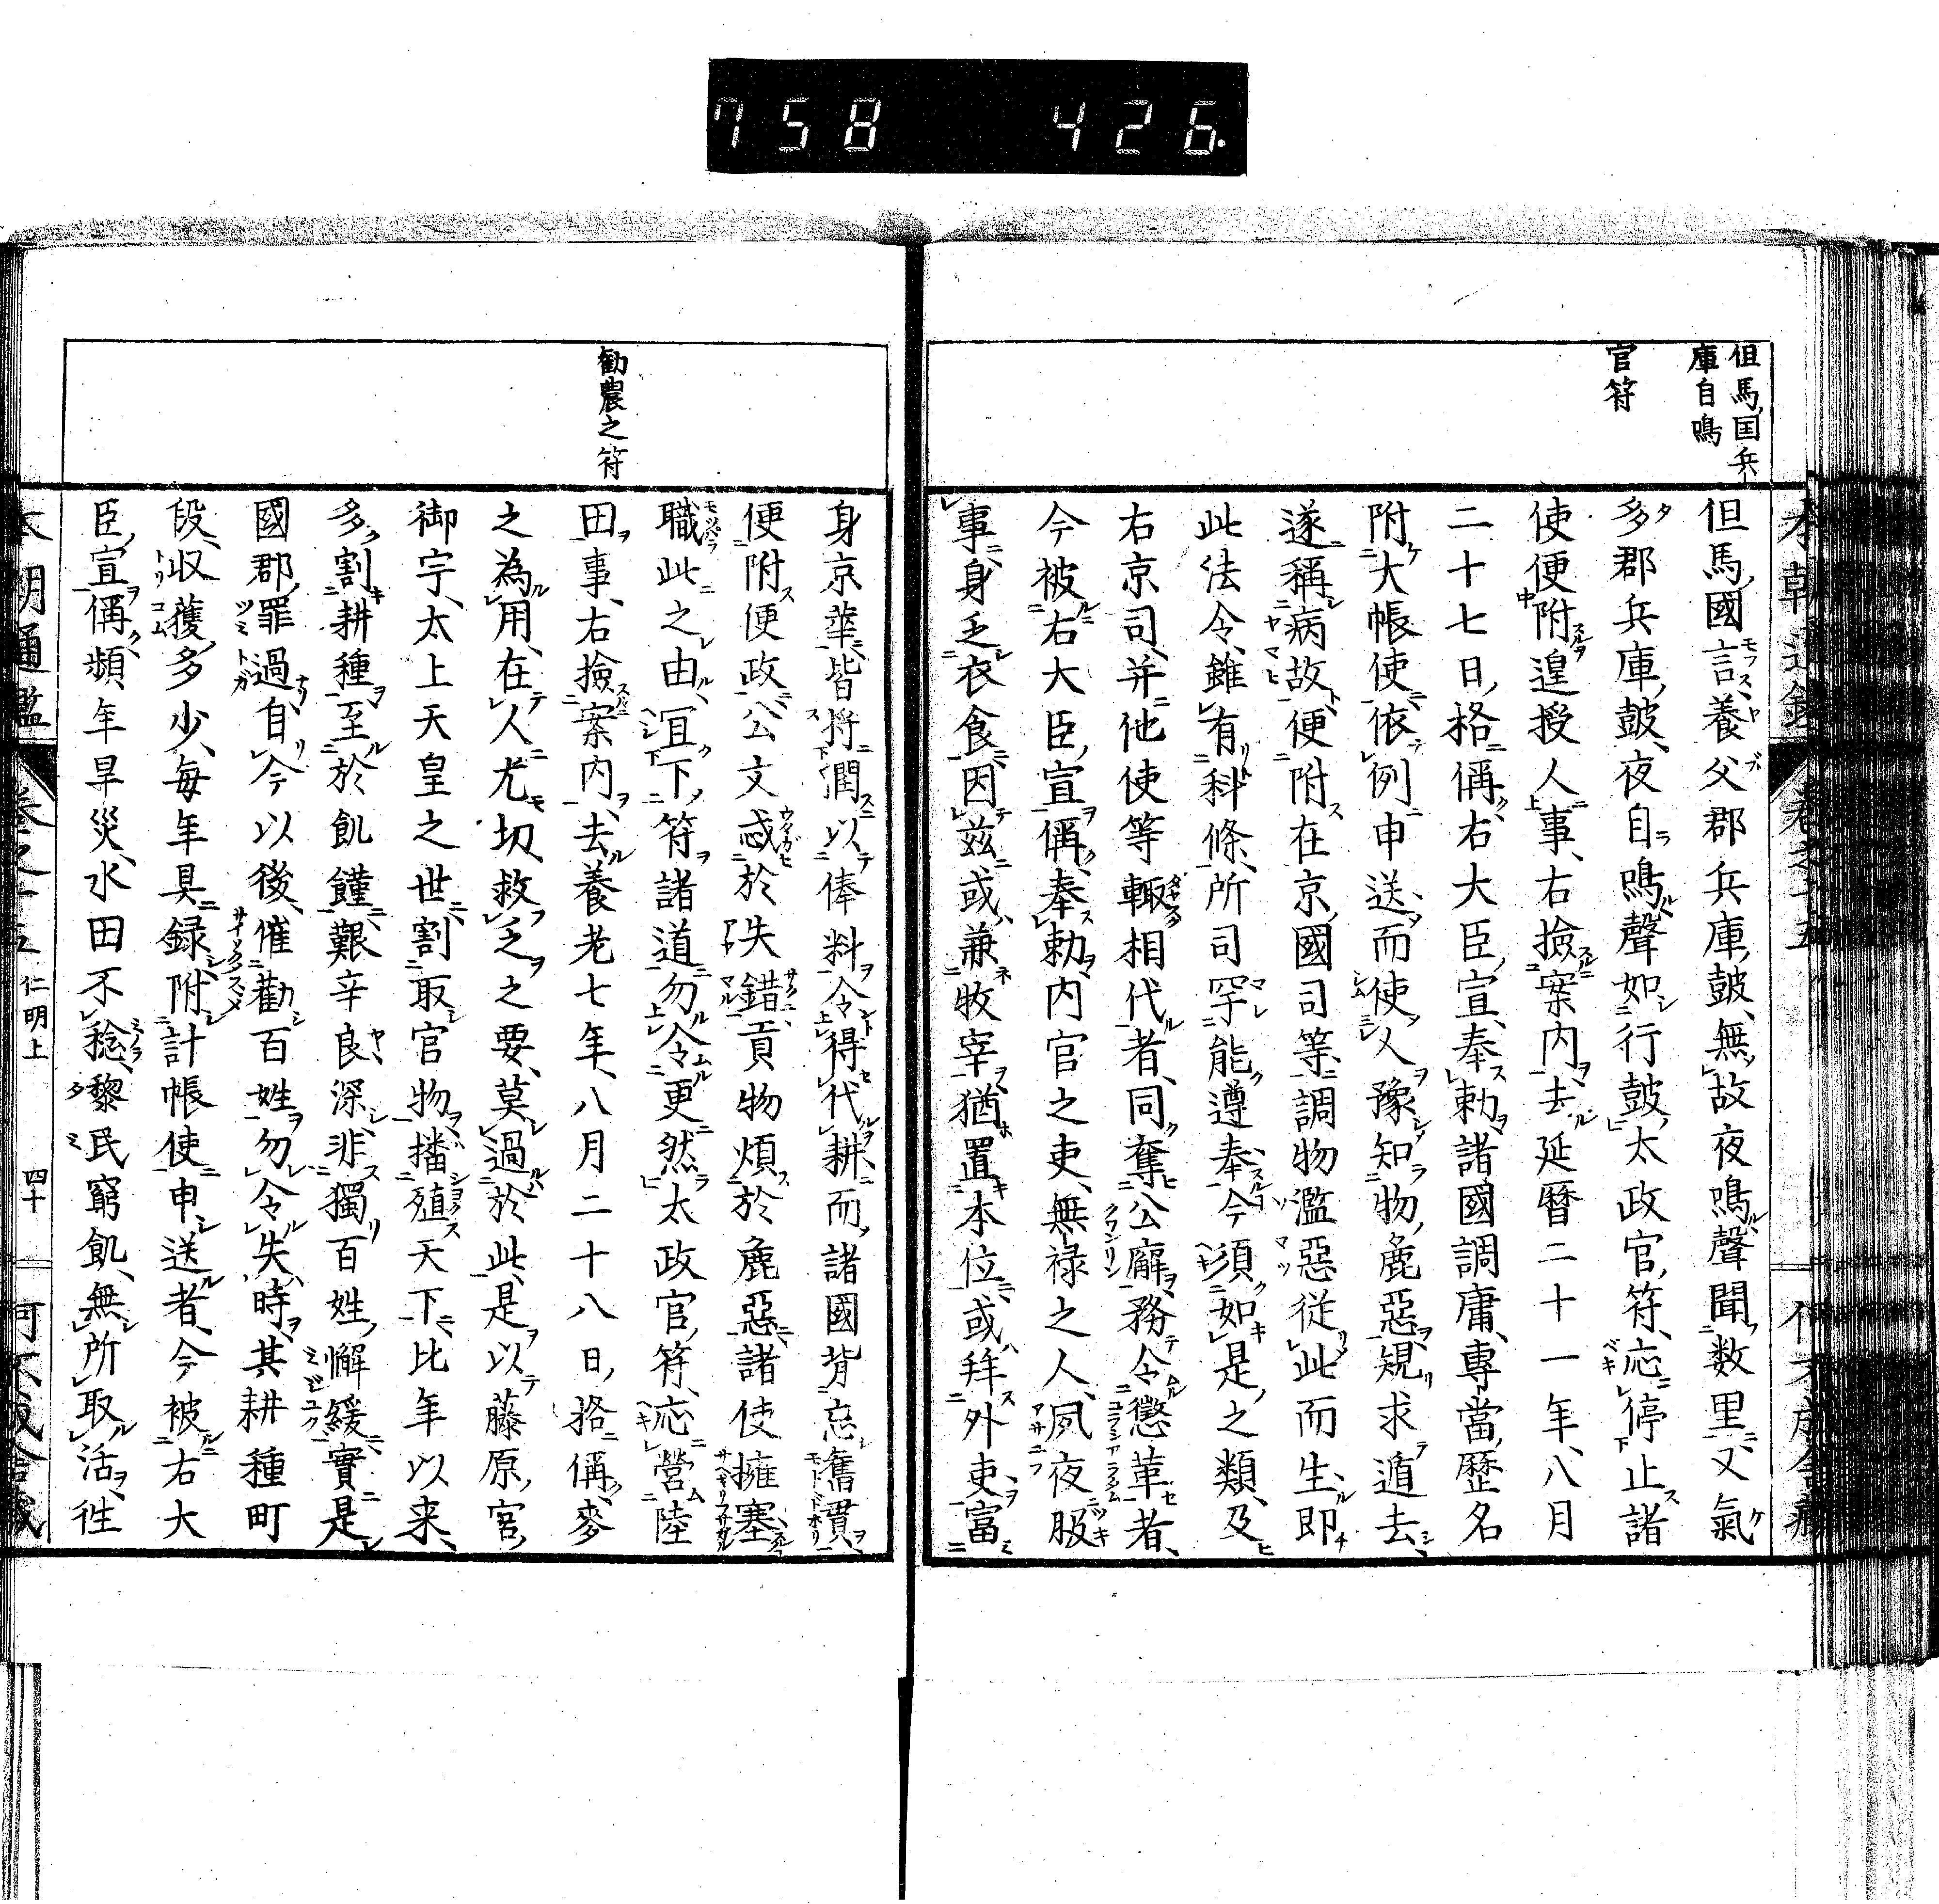 758 426.
但馬国兵
庫自鳴
官符
但馬國言養父郡兵庫皷無故夜鳴聲聞数里又氣
多郡兵庫皷夜自鳴聲如行皷太政官符応停止諸
使便附遑授人事右撿案内去延暦二十一年八月
二十七日格偁右大臣宣奉勅諸國調庸專當歴名
附大帳使依例申送而使人豫知物麁惡規求遁去
遂稱病故便附在京國司等調物濫惡従此而生即
此法令雖有科條所司罕能遵奉今須如是之類及
右京司并他使等輙相代者同奪公廨務令懲革者
今被右大臣宣偁奉勅内官之吏無禄之人夙夜服
事身乏衣食因茲或兼牧宰猶置本位或拜外吏富
勧農之符
身京華皆将潤以俸料令得代耕而諸國背忘舊貫
便附便政公文忒於失錯貢物煩於麁惡諸使擁塞
職此之由冝下符諸道勿令更然太政官符応營陸
田事右撿案内去養老七年八月二十八日格偁麥
之為用在人尤切救乏之要莫過於此是以藤原宮
御宇太上天皇之世割取官物播殖天下比年以来
多割耕種至於飢饉艱辛良深非獨百姓懈緩實是
國郡罪過自今以後催勸百姓勿令失時其耕種町
段収獲多少毎年具録附計帳使申送者今被右大
臣宣偁頻年旱災水田不稔黎民窮飢無所取活徃
仁明上
四十